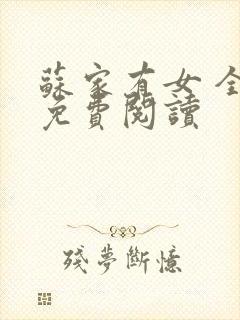 蘇家有女全
免費閱讀
殘夢斷憶